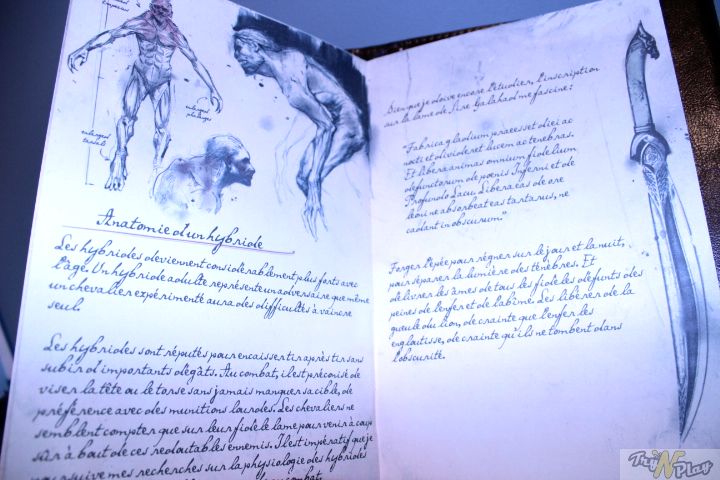 enlarged
phalanges
enlarged
tarsals
Anatomie d'un hybride
Les hybrides deviennent considérablement plus forts avec
l'âge. Un hybride adulte représente un adversaire que même
un chevalier expérimenté aura des difficultés à vaincre
seul.
Les hybrides sont réputés pour encaisser tir après tir sans
subir d'importants dégâts. Au combat, il est préconisé de
viser la tête ou le torse sans jamais manquer sa cible, de
préférence avec des munitions lourdes. Les chevaliers ne
semblent compter que sur leur fidèle lame pour venir à coup
sûr à bout de ces redoutables ennemis. Il est impératif que je
poursuive mes recherches sur la physiologie des hybrides
combat.
Bien que je doive encore l'étudier, l'inscription
sur la lame de Sire Galahad me fascine :
"Fabrica gladium praeesset diei ac
nocti et divideret lucem ac tenebras.
Et libera animas omnium fidelium
defunctorum de poenis Inferni et de
Profundo Lacu. Libera eas de ore
leoni ne absorbeat eas tartarus, ne
cadant in obscurum."
Forger l'épée pour régner sur le jour et la nuit,
pour séparer la lumière des ténèbres. Et
délivrer les âmes de tous les fidèles défunts des
peines de l'enfer et de l'abîme. Les libérer de la
gueule du lion, de crainte que l'enfer les
engloutisse, de crainte qu'ils ne tombent dans
l'obscurité.
Try N Play